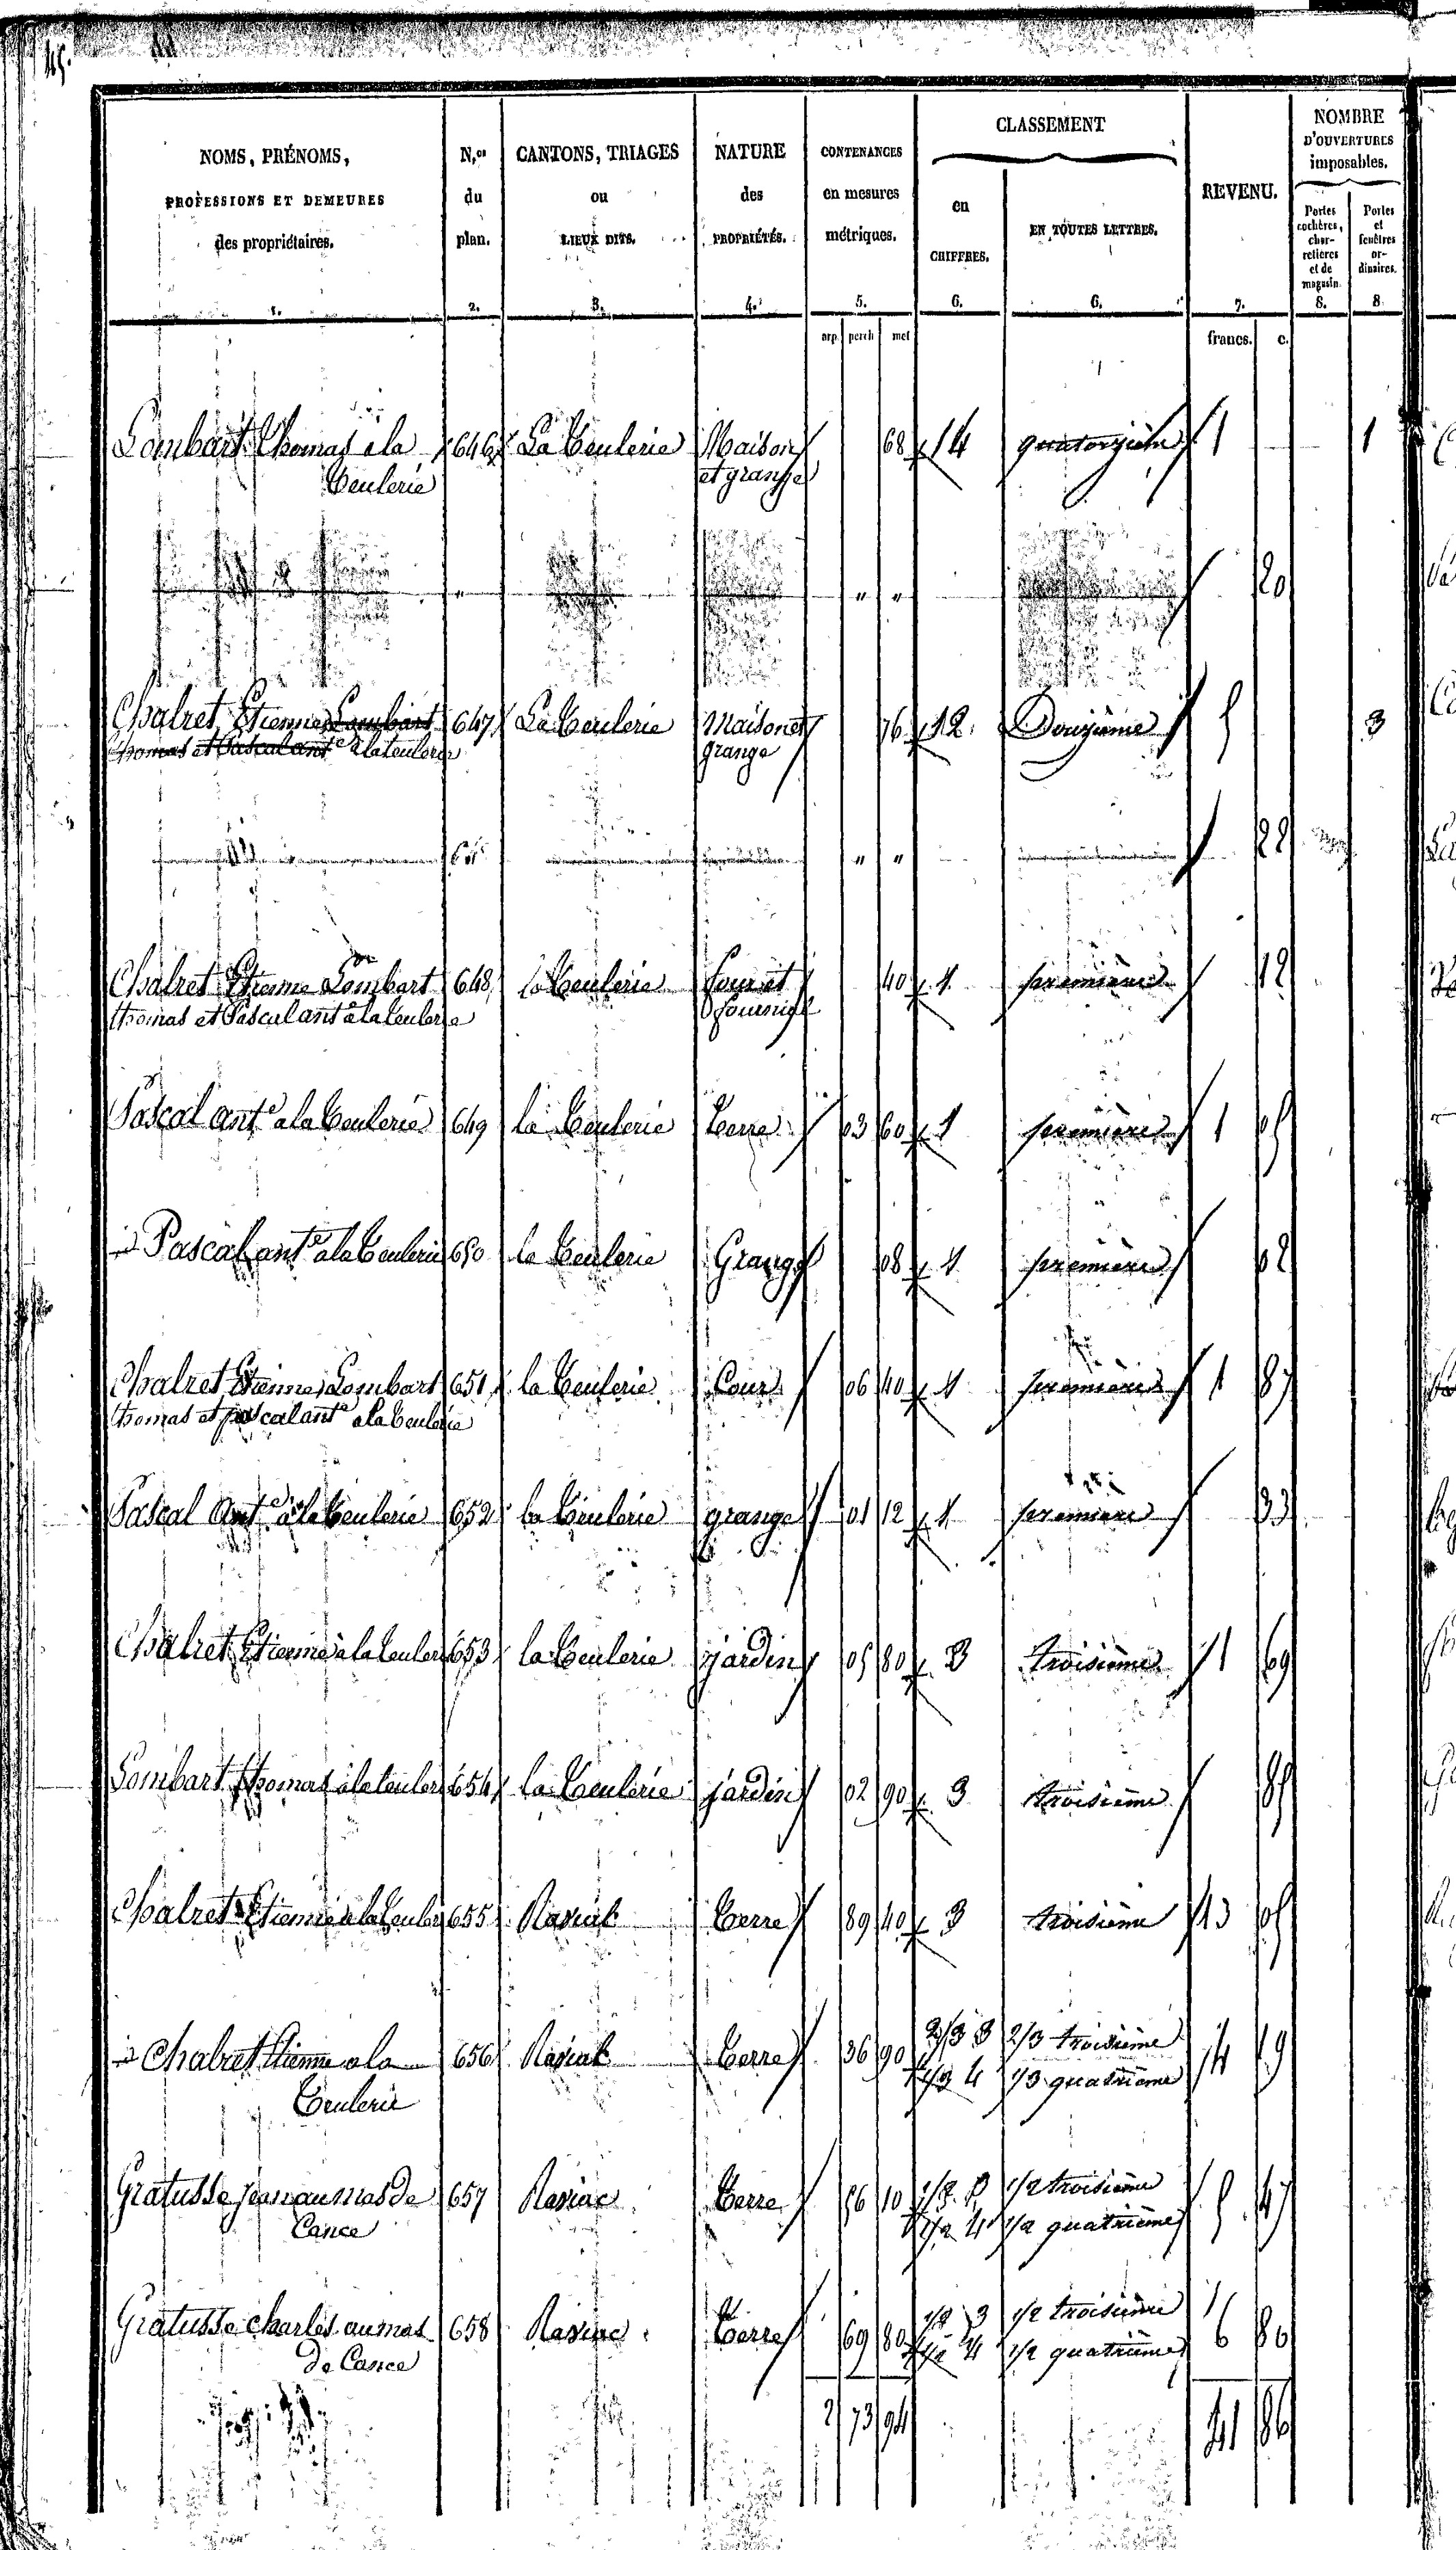 45.
NOMS, PRÉNOMS, PROFESSIONS ET DEMEURES des propriétaires. 1.
N.os du plan. 2.
CANTONS, TRIAGES ou LIEUX DITS. 3.
NATURE des PROPRIÉTÉS. 4.
CONTENANCES en mesures métriques. 5.
CLASSEMENT
en CHIFFRES. 6.
EN TOUTES LETTRES. 6.
REVENU. 7.
NOMBRE D'OUVERTURES imposables.
Portes cochères, charretières et de magasin. 8.
Portes et fenêtres ordinaires. 8.
arp. perch met francs. c.
Lombart Thomas à la 646 La Teulerie Maison 68 14 quatorzième 1 1
Teulerie et grange
" " " 20
Chalret Etienne Lombart 647 La Teulerie Maison et 76 12 Douzième 5 3
Thomas et Pascal ant.e à la teulerie grange
" " 22
Chalret Etienne Lombart 648 la Teulerie four et 40 1 première 12
Thomas et Pascal ant.e à la Teulerie fournial
Pascal ant.e a la Teulerie 649 la Teulerie Terre 03 60 1 première 1 05
Pascal ant.e a la Teulerie 650 la Teulerie Grange 08 1 première 02
Chalret Etienne, Lombart 651 la Teulerie Cour 06 40 1 première 1 87
Thomas et pascal ant.e a la Teulerie
Pascal Ant.e à la Teulerie 652 la Teulerie grange 01 12 1 première 33
Chalret Etienne à la Teuler 653 la Teulerie jardin 05 80 3 troisième 1 69
Lombart Thomas à la teuler 654 la Teulerie jardin 02 90 3 troisième 85
Chalret Etienne à la Teuler 655 Rasiac Terre 89 40 3 troisième 13 05
Chalret Etienne a la 656 Rasiac Terre 36 90 2/3 3 2/3 troisième 4 19
Teulerie 1/3 4 1/3 quatrième
Gratusse Jean au mas de 657 Rasiac Terre 56 10 1/2 3 1/2 troisième 5 47
Cance 1/2 4 1/2 quatrième
Gratusse Charles au mas 658 Rasiac Terre 69 80 1/2 3 1/2 troisième 6 80
de Cance 1/2 4 1/2 quatrième
2 73 94 41 86